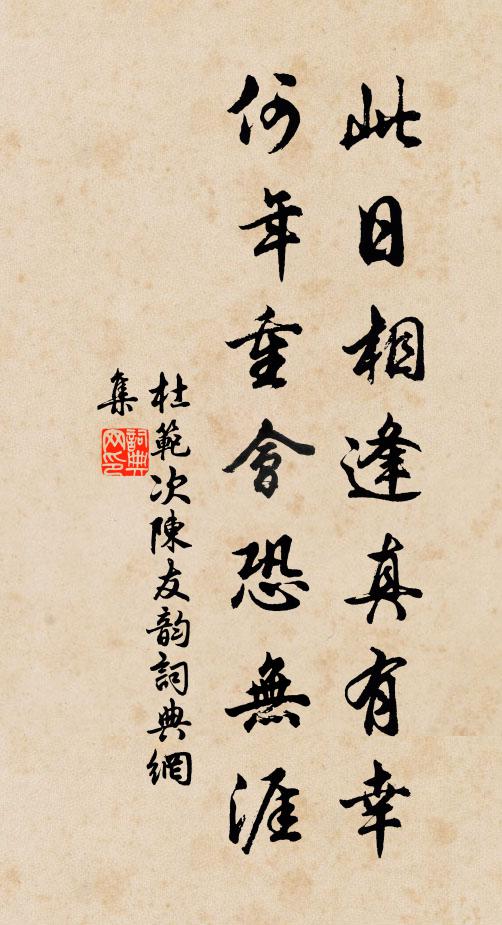 此日相逢真有幸
何年重會恐無涯
杜範次陳友韵詞典網
集
詞典网印